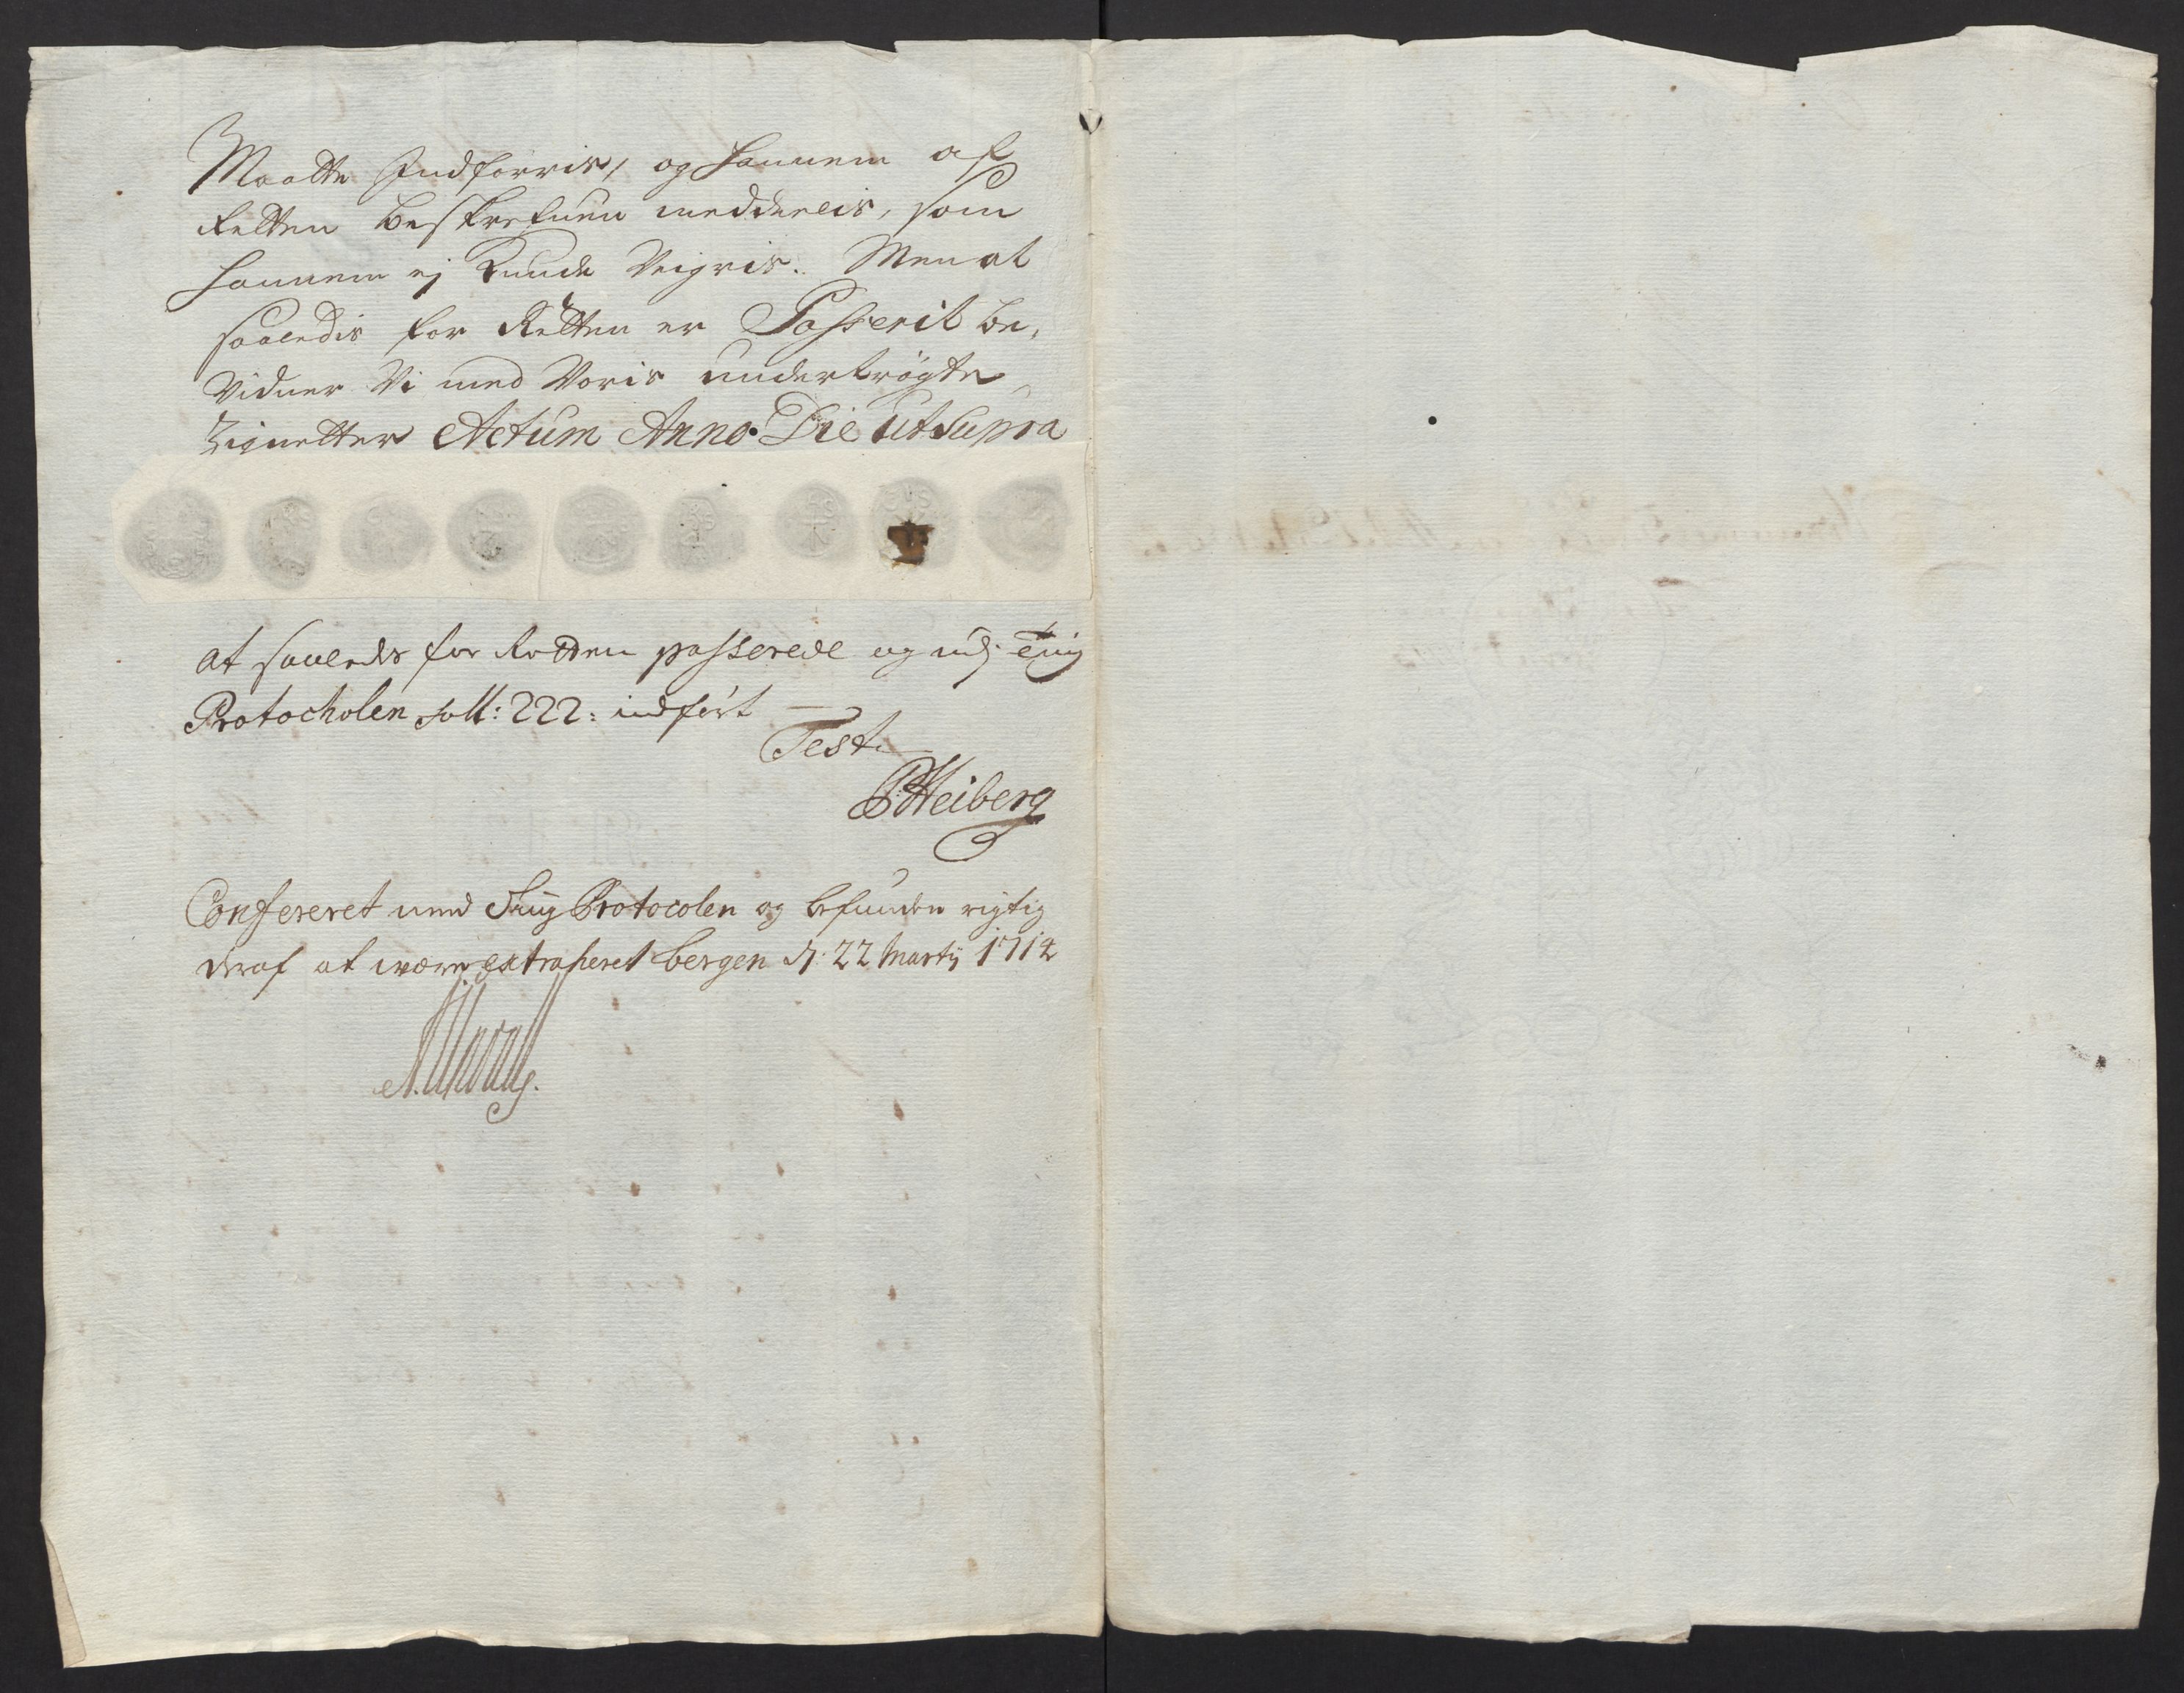 Maatte Indførris, og hannem af
Retten beskrefuen meddeelis, som
hannem ej kunde Veigris. Men at
saaledis for Retten er Passerit be,
Vidner Vi med Voris undertrögte
Zignetter Actum Anno Die ut Supra
at saaledes for Retten passerede og udj Ting
Protocholen foll: 222: indført
Test
PHeiberg
Confereret med Ting Protocolen og befunden rigtig
deraf at være extraheret bergen d: 22 Martij 1714